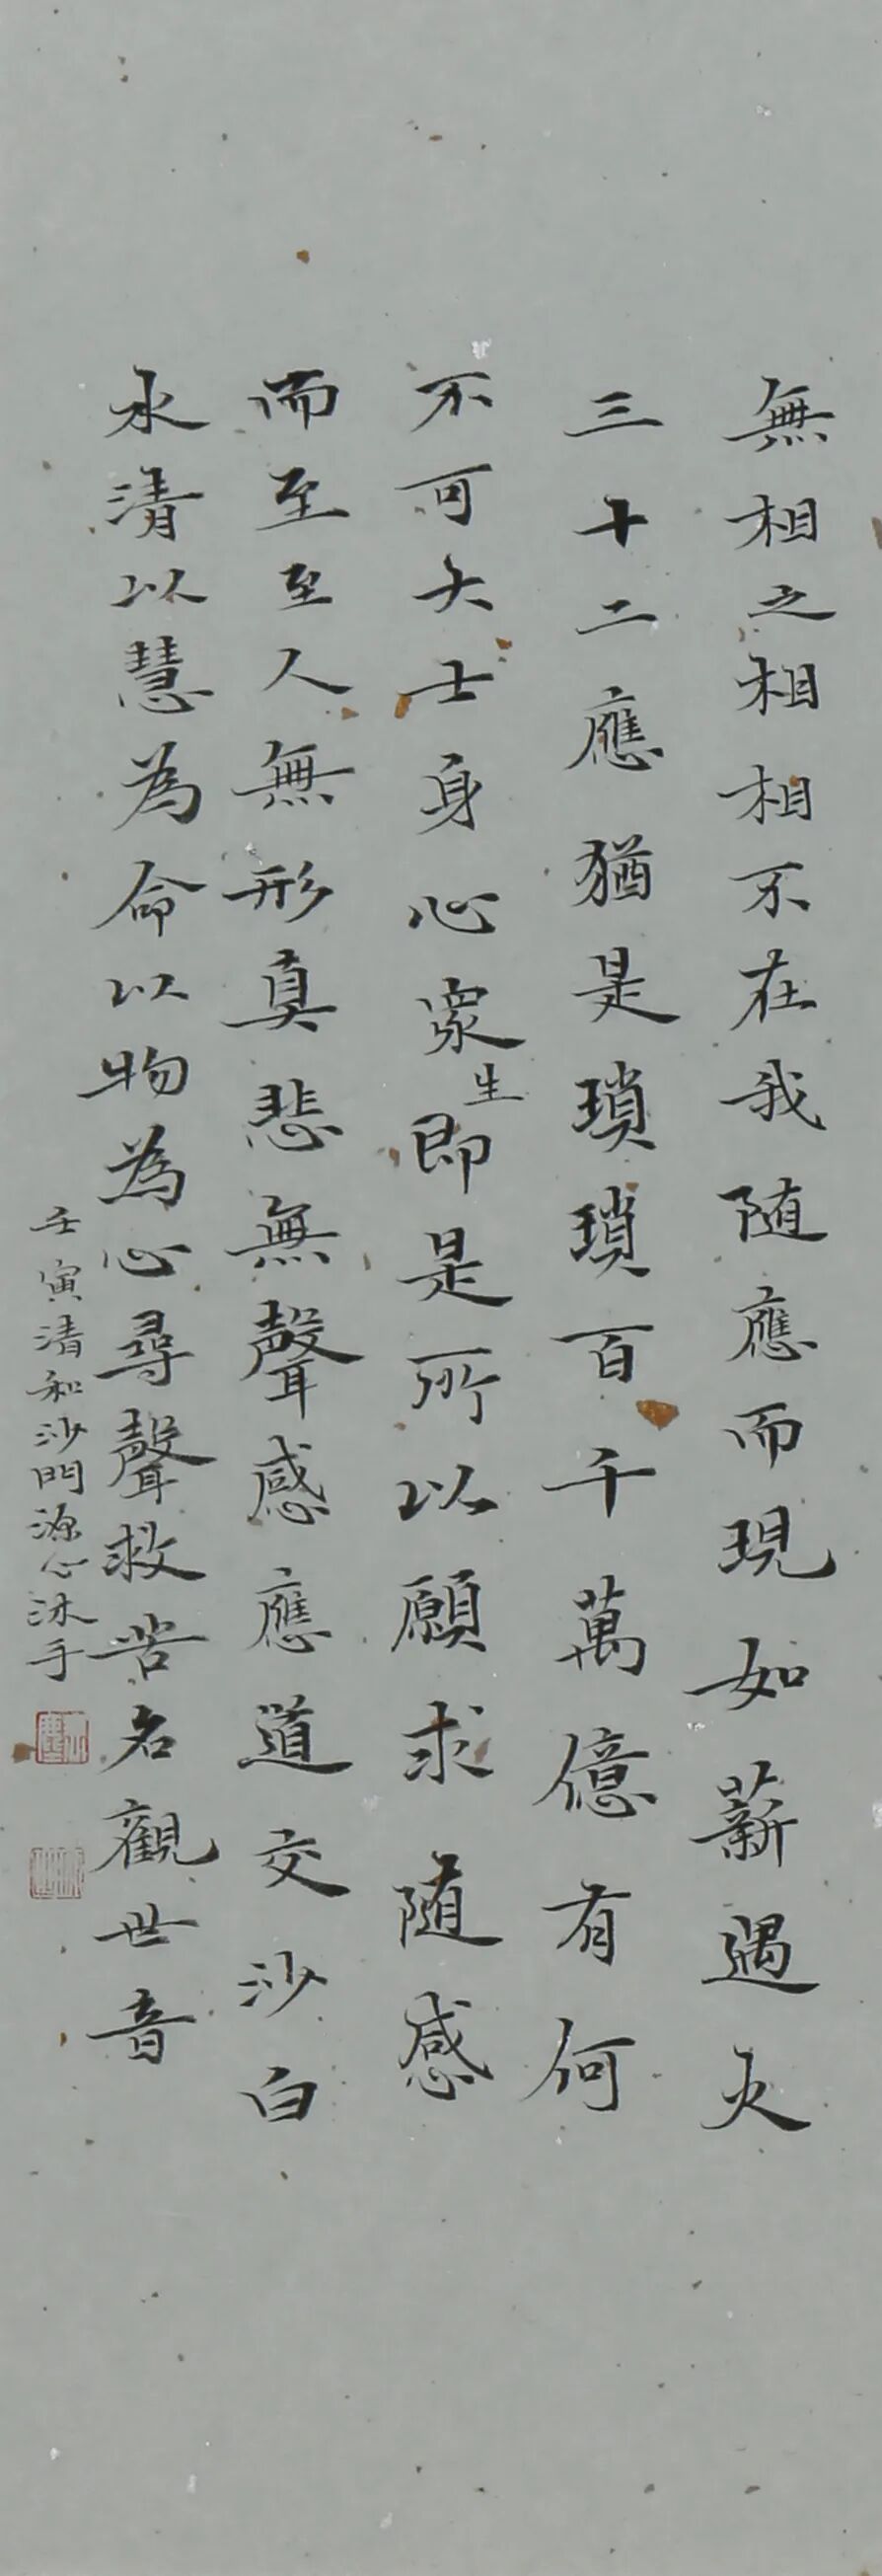 無相之相相不在我随應而現如薪遇火
三十二應猶是瑣瑣百千萬億有何
不可大士身心衆生即是所以願求随感
而至至人無形真悲無聲感應道交沙白
水清以慧為命以物為心尋聲救苦名觀世音
壬寅清和沙門源心沐手